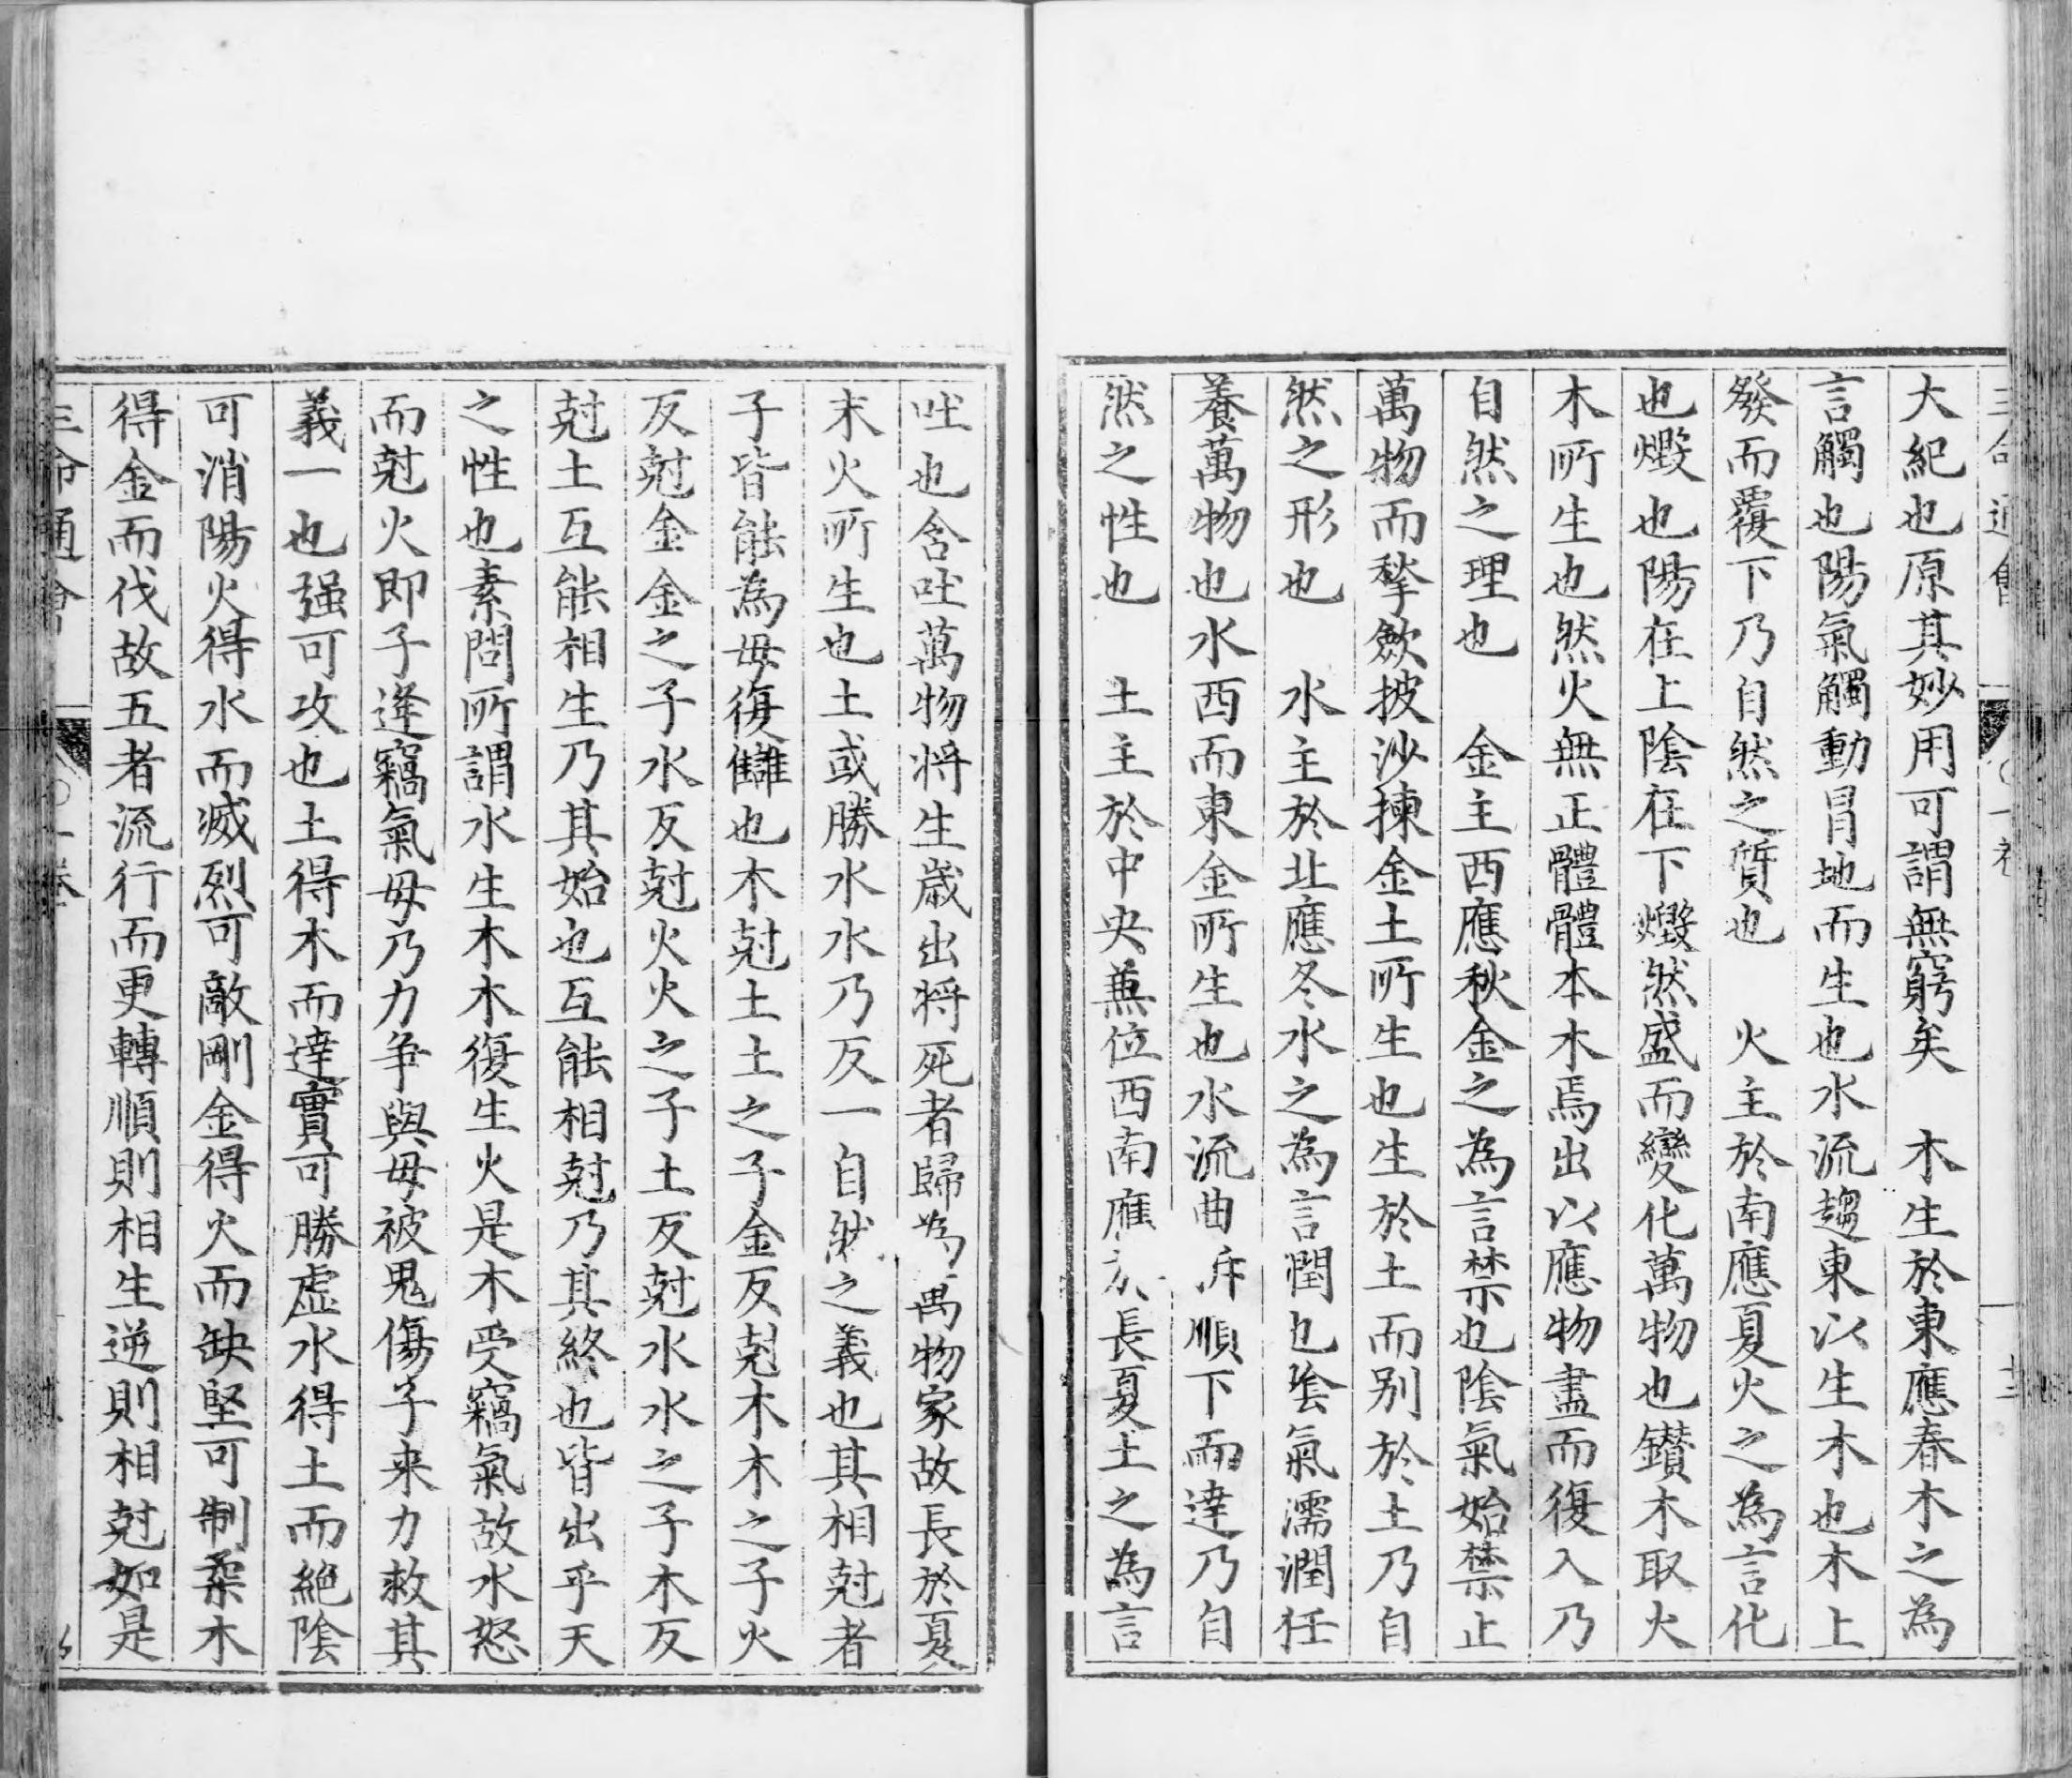 大紀也原其妙用可謂無窮矣　木生於東應春木之為
言觸也陽氣觸動冒地而生也水流趨東以生木也木上
發而覆下乃自然之質也　火主於南應夏火之為言化
也燬也陽在上陰在下燬然盛而變化萬物也鑽木取火
木所生也然火無正體體本木焉出以應物盡而復入乃
自然之理也　金主西應秋金之為言禁也陰氣始禁止
萬物而揫歛披沙揀金土所生也生於土而别於土乃自
然之形也　水主於北應冬水之為言潤也陰氣濡潤任
養萬物也水西而東金所生也水流曲折順下而達乃自
然之性也　土主於中央兼位西南應於長夏土之為言
吐也含吐萬物将生歳出将死者歸為萬物家故長於夏
末火所生也土或勝水水乃反一自然之義也其相尅者
子皆能為毋復讎也木尅土土之子金反尅木木之子火
反尅金金之子水反尅火火之子土反尅水水之子木反
尅土互能相生乃其始也互能相尅乃其終也皆出乎天
之性也素問所謂水生木木復生火是木受竊氣故水怒
而尅火即子逢竊氣毋乃力争與毋被鬼傷子来力救其
義一也强可攻也土得木而達實可勝虛水得土而絶陰
可消陽火得水而滅烈可敵剛金得火而缺堅可制柔木
得金而伐故五者流行而更轉順則相生逆則相尅如是
三命通會　○一卷